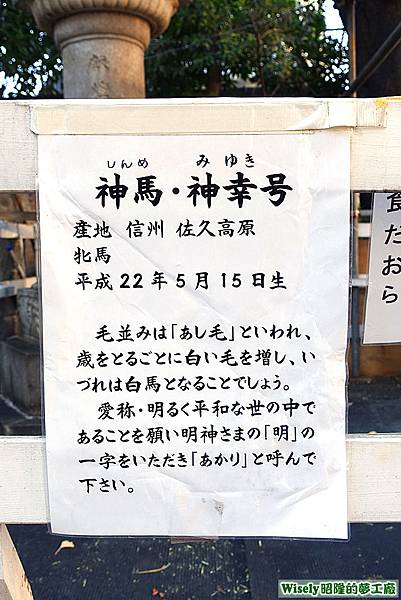 しんめ　みゆき
神馬・神幸号
産地 信州 佐久高原
牝馬
平成22年5月15日生
毛並みは「あし毛」といわれ、
歳をとるごとに白い毛を増し、い
づれは白馬となることでしょう。
愛称・明るく平和な世の中で
あることを願い明神さまの「明」の
一字をいただき「あかり」と呼んで
下さい。
食
だ
お
ら
Wisely昭隆的夢工廠